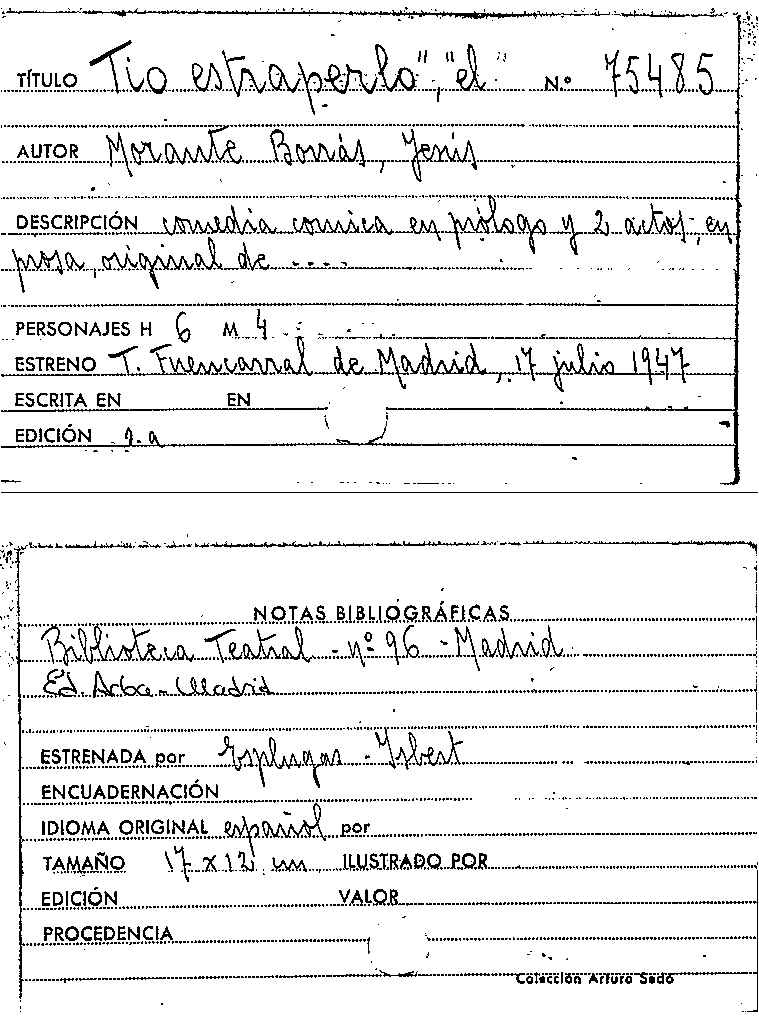 TÍTULO Tio estraperlo", "el" N.º 75485
AUTOR Morante Borrás, Jenís
DESCRIPCIÓN comedia comica en prólogo y 2 actos, en
prosa, original de ....
PERSONAJES H 6 M 4
ESTRENO T. Fuencarral de Madrid, 17 julio 1947
ESCRITA EN EN
EDICIÓN 1.a
NOTAS BIBLIOGRÁFICAS
Biblioteca Teatral - nº 96 - Madrid
Ed. Arba - Madrid
ESTRENADA por Esplugas - Isbert
ENCUADERNACIÓN
IDIOMA ORIGINAL español por
TAMAÑO 17 x 12 cm ILUSTRADO POR
EDICIÓN VALOR
PROCEDENCIA
Colección Arturo Sedó